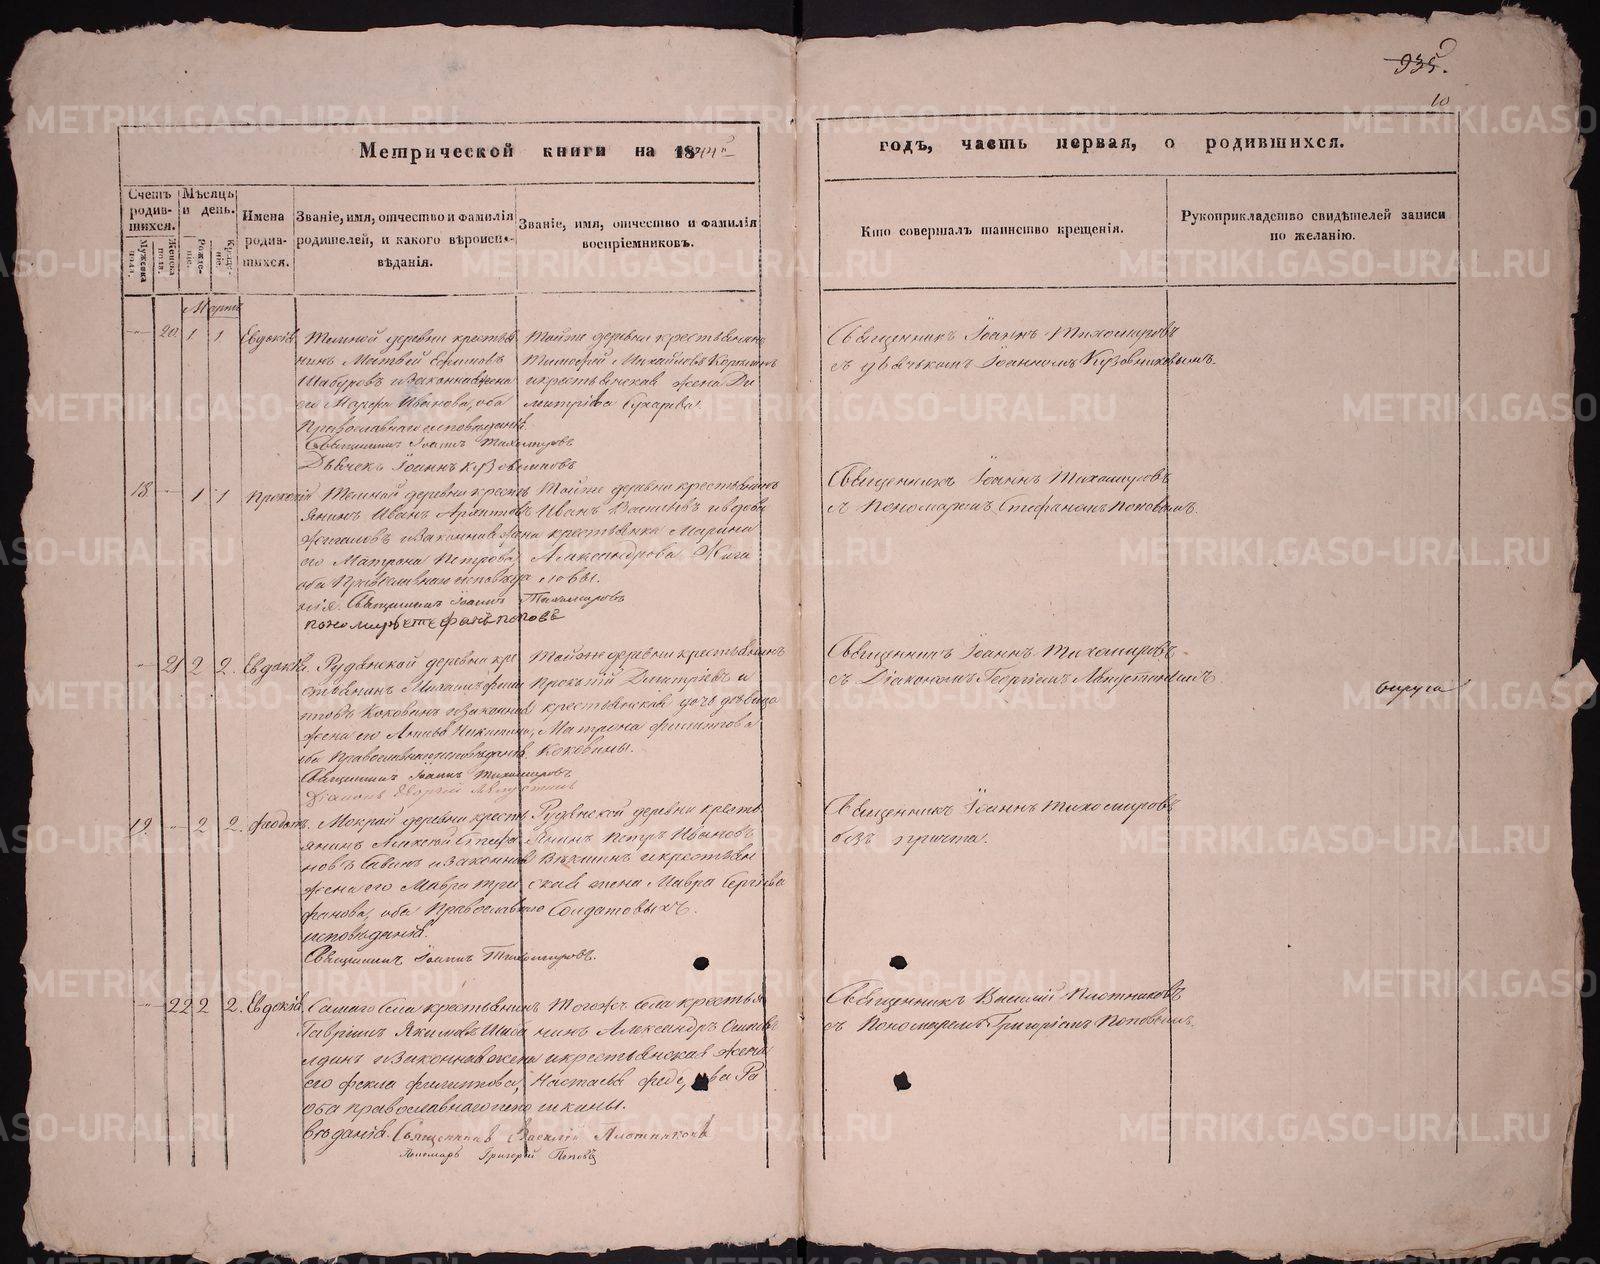 935.
10
Метрической книги на 1844
годъ, часть первая, о родившихся.
Счетъ родив-шихся.
Мужеска пола.
Женска пола.
Мѣсяцъ и день.
Рожде-ніе.
Креще-ніе.
Имена родив-шихся.
Званіе, имя, отчество и фамилія родителей, и какого вѣроиспо-вѣданія.
Званіе, имя, отчество и фамилія воспріемниковъ.
Кто совершалъ таинство крещенія.
Рукоприкладство свидѣтелей записи по желанію.
Мартъ
20 1 1 Евдокія
деревни кресть
нинъ Матвей Ефимовъ
Шабуровъ и законная жена
его Марѳа Иванова, оба
Православнаго исповеданія.
Священникъ Іоаннъ Тихомировъ
Дьячекъ Іоаннъ Кузовниковъ
Тойже деревни крестьянинъ
Тимофей Михайловъ
и крестьянская жена Ди
митріева Сухарева.
Священникъ Іоаннъ Тихомировъ
съ дьячькомъ Іоанномъ Кузовниковымъ.
18 1 1 Прокопій
деревни кресть
янинъ Иванъ Архиповъ
Жигаловъ и законная жена
его Матрона Петрова,
оба Православнаго исповеда
нія. Священникъ Іоаннъ Тихомировъ
пономарь стефанъ поповъ
Тойже деревни крестьянинъ
Иванъ Васильевъ и вдова
крестьянка Марина
Александрова Жига
ловы.
Священникъ Іоаннъ Тихомировъ
съ Пономаремъ Стефаномъ Поповымъ.
21 2 2. Евдокія.
Рудянской деревни кре
стьянинъ Михаилъ Фили
повъ Коковинъ и законная
жена его Анна Никитина,
оба Православнаго исповеданія.
Священникъ Іоаннъ Тихомировъ
Діаконъ Георгій
Тойже деревни крестьянинъ
Прокопій Димитріевъ и
крестьянская дочь девица
Матрона Филиппова
Коковины.
Священникъ Іоаннъ Тихомировъ
съ Діакономъ Георгіемъ
округа
19. 2 2. Ѳеодотъ.
Мокрой деревни кресть
янинъ Алексей Стефа
новъ Савинъ и законная
жена его Мавра Три
фанова, оба Православнаго
исповеданія.
Священникъ Іоаннъ Тихомировъ.
Рудянской деревни кресть
янинъ Петръ Ивановъ
и крестьян
ская жена Мавра Сергіева
Солдатовыхъ.
Священникъ Іоаннъ Тихомировъ
безъ причта.
22 2 2. Евдокія.
Самаго села крестьянинъ
Гавріилъ Якимовъ
и законная жена
его Фекла Филиппова,
оба православнаго испо
веданія. Священникъ Василій Плотниковъ
Пономарь Григорій Поповъ
Тогожъ села крестья
нинъ Александръ
и крестьянская жена
Настасья Федорова Ра
шкины.
Священникъ Василій Плотниковъ
съ Пономаремъ Григоріемъ Поповымъ.
METRIKI.GASO-URAL.RU